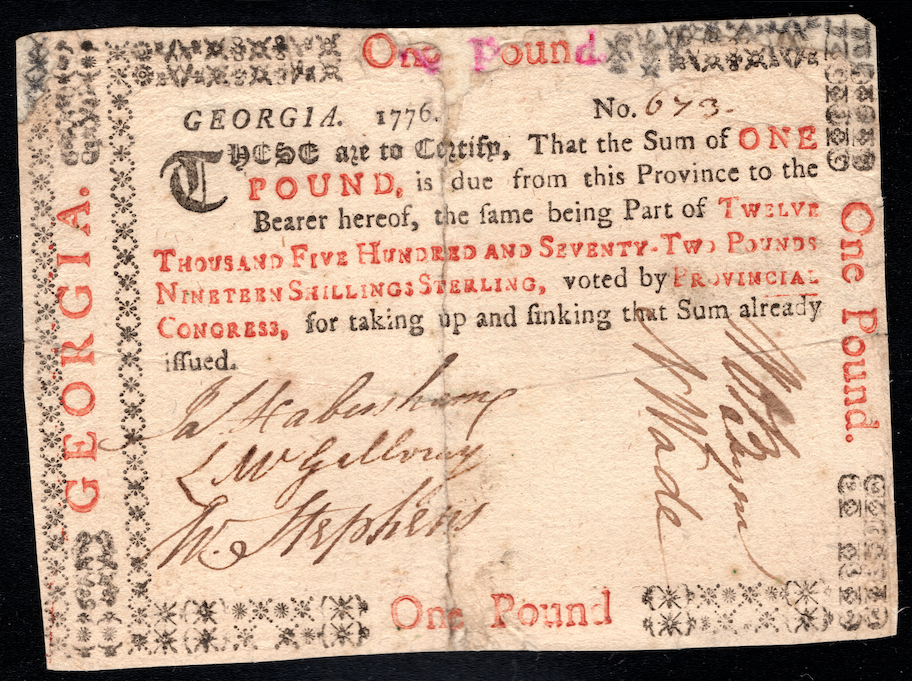 One Pound.
GEORGIA. 1776. No. 673.
THESE are to Certify, That the Sum of ONE
POUND, is due from this Province to the
Bearer hereof, the ſame being Part of TWELVE
THOUSAND FIVE HUNDRED AND SEVENTY-TWO POUNDS
NINETEEN SHILLINGS STERLING, voted by PROVINCIAL
CONGRESS, for taking up and ſinking that Sum already
iſſued.
Ja Habersham
L McGillvray
Wm. Stephens
N Wade
One Pound
GEORGIA.
One Pound.